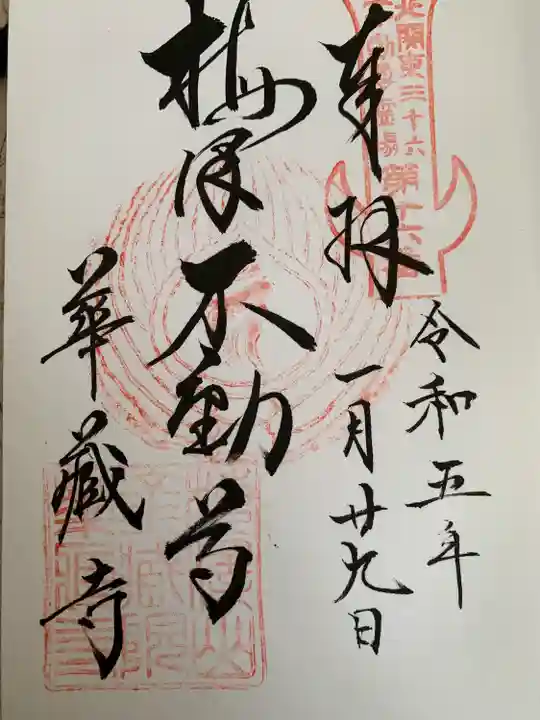 奉拝
令和五年
一月廿九日
梅澤不動尊
華蔵寺
北関東三十六
不動尊霊場
第十六番